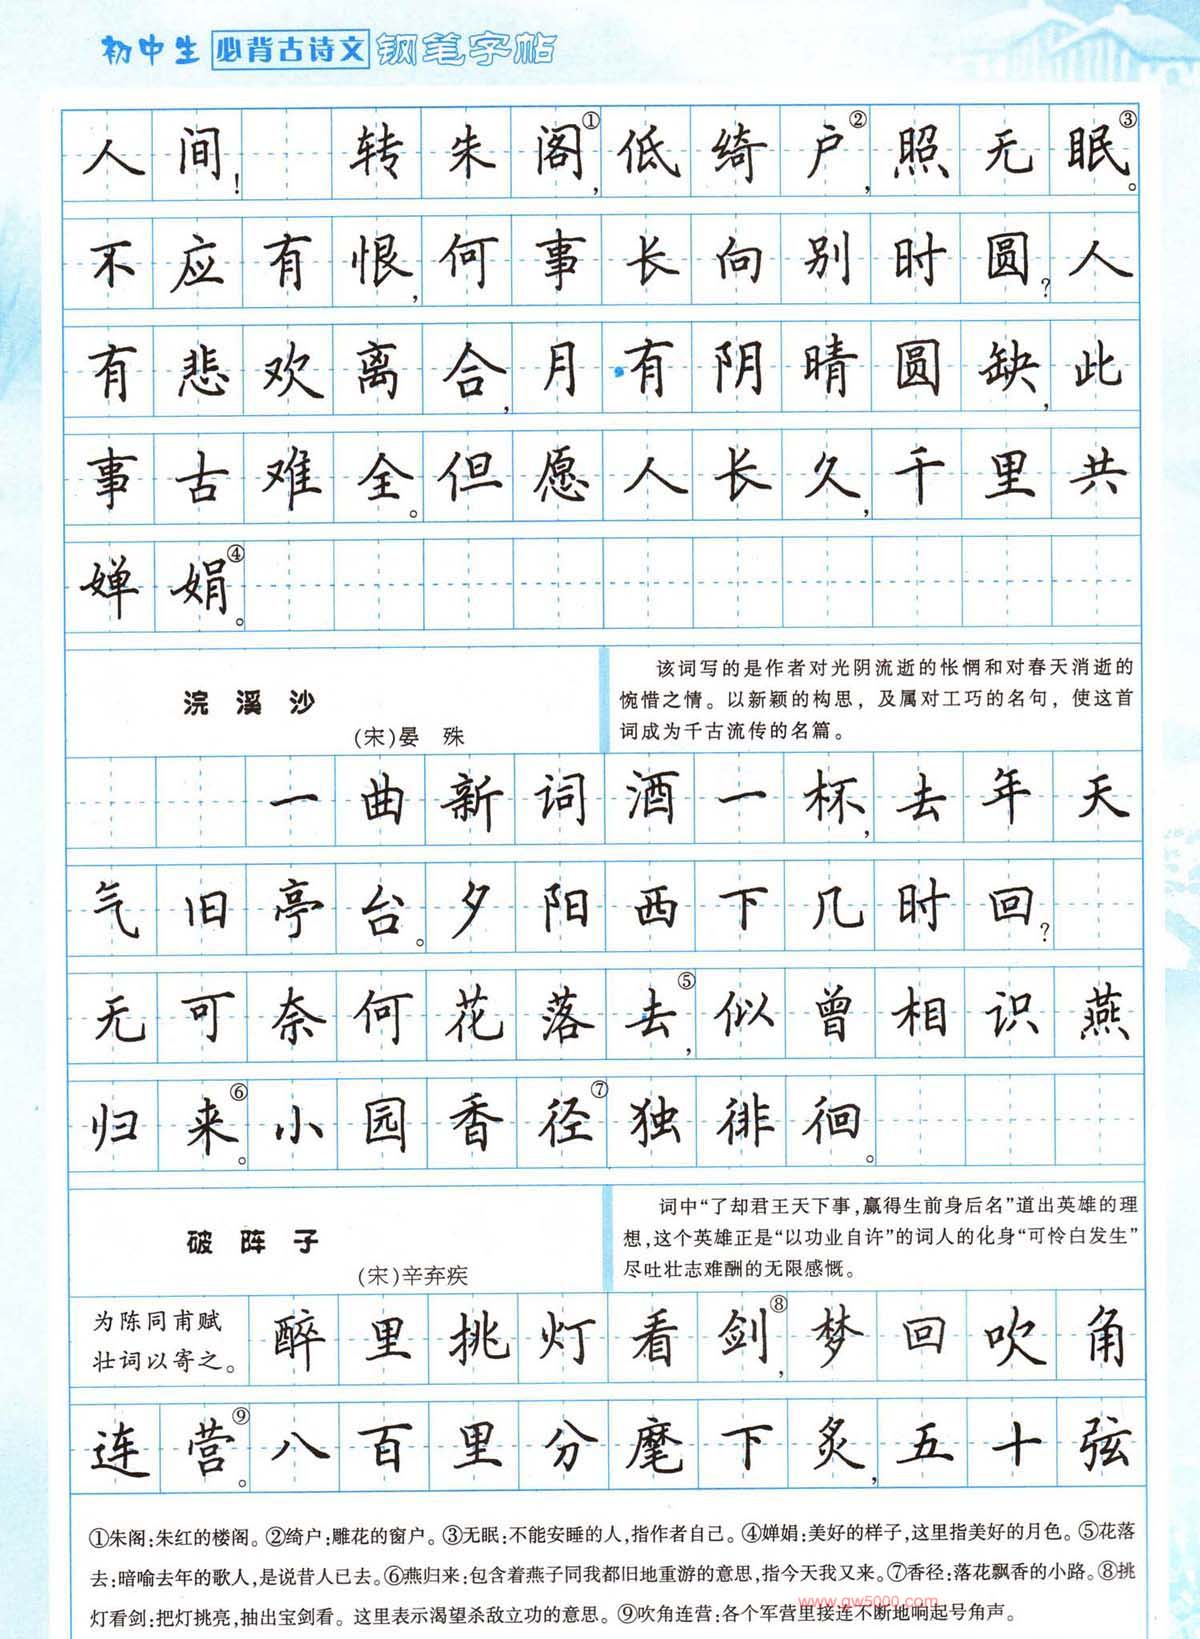 初中生 必背古诗文 钢笔字帖
人间！ 转朱阁①，低绮户②，照无眠③。
不应有恨，何事长向别时圆？人
有悲欢离合，月有阴晴圆缺，此
事古难全。但愿人长久，千里共
婵娟④。
浣溪沙
(宋)晏 殊
该词写的是作者对光阴流逝的怅惘和对春天消逝的
惋惜之情。以新颖的构思，及属对工巧的名句，使这首
词成为千古流传的名篇。
一曲新词酒一杯，去年天
气旧亭台。夕阳西下几时回？
无可奈何花落去⑤，似曾相识燕
归来⑥。小园香径⑦独徘徊。
破阵子
(宋)辛弃疾
词中“了却君王天下事，赢得生前身后名”道出英雄的理
想，这个英雄正是“以功业自许”的词人的化身“可怜白发生”
尽吐壮志难酬的无限感慨。
为陈同甫赋
壮词以寄之。
醉里挑灯看剑⑧，梦回吹角
连营⑨。八百里分麾下炙，五十弦
①朱阁：朱红的楼阁。②绮户：雕花的窗户。③无眠：不能安睡的人，指作者自己。④婵娟：美好的样子，这里指美好的月色。⑤花落
去：暗喻去年的歌人，是说昔人已去。⑥燕归来：包含着燕子同我都旧地重游的意思，指今天我又来。⑦香径：落花飘香的小路。⑧挑
灯看剑：把灯挑亮，抽出宝剑看。这里表示渴望杀敌立功的意思。⑨吹角连营：各个军营里接连不断地响起号角声。
www.gw5000.com